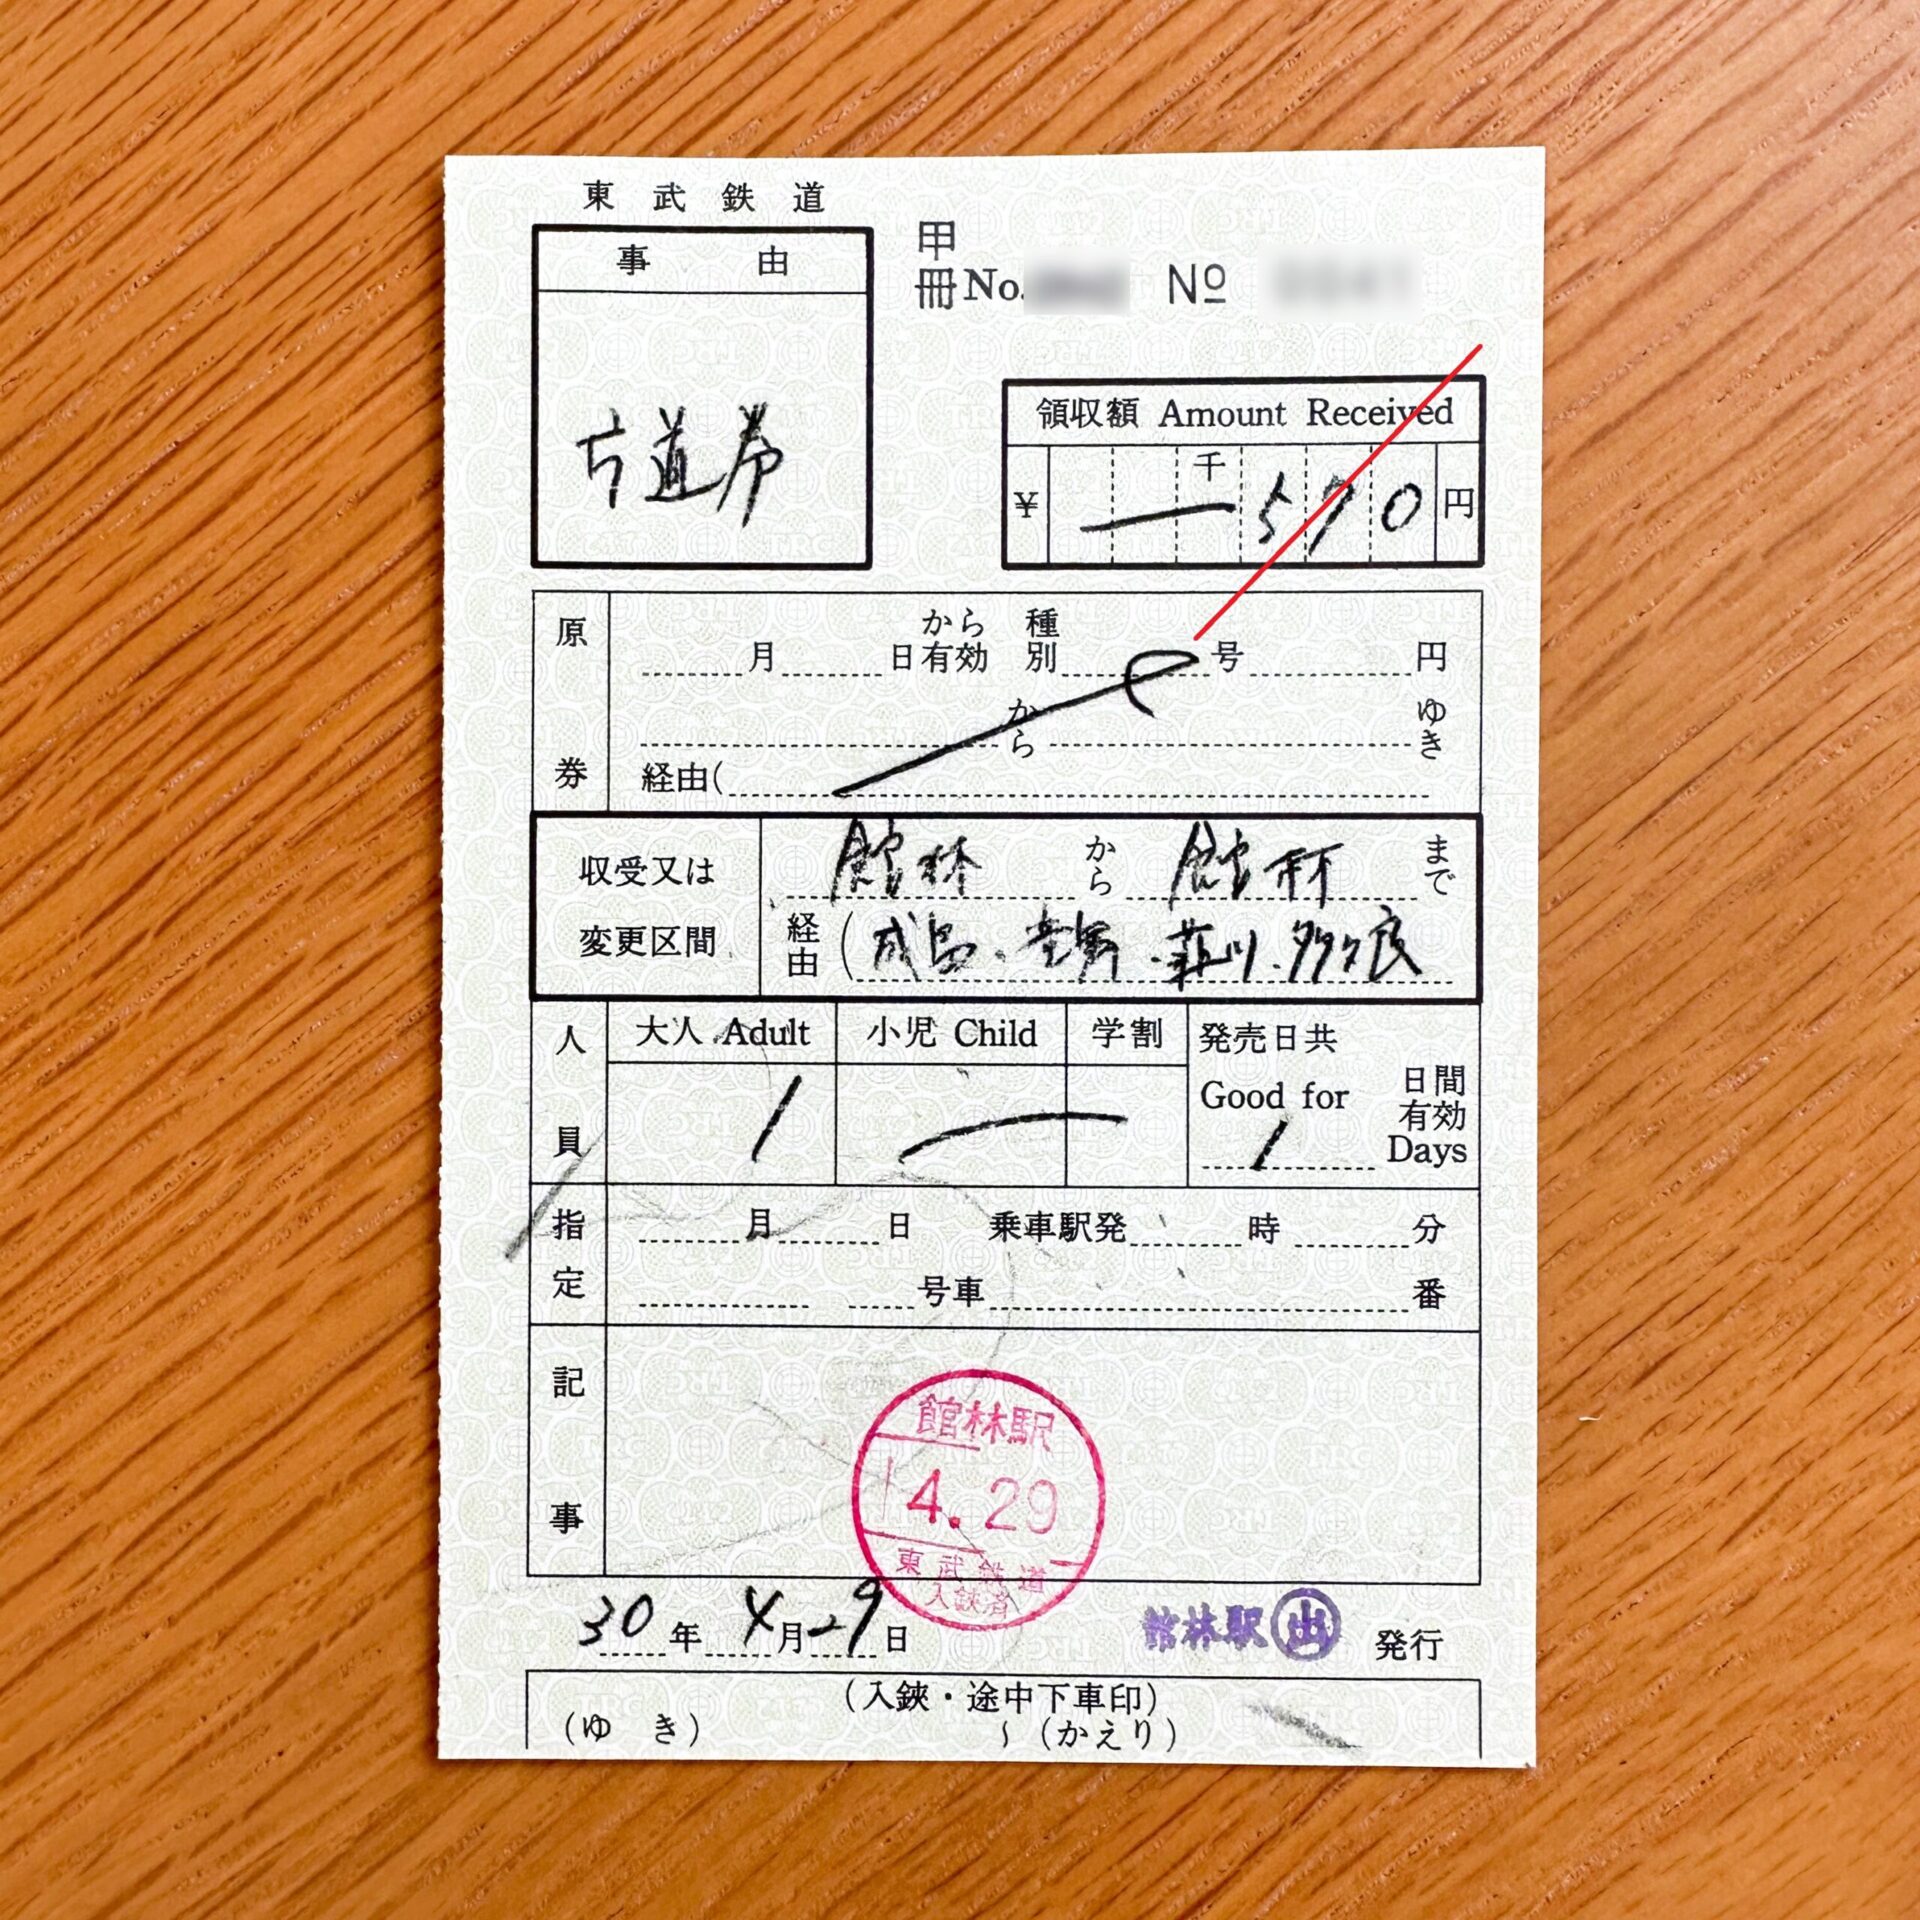 東武鉄道
事由
片道券
甲
冊No. №
領収額 Amount Received
千
¥ 570 円
原券
月 日から有効 種別 号 円
から ゆき
経由(
収受又は
変更区間
館林 から 館林 まで
経由(成島・竜舞・韮川・多々良
人員
大人 Adult 小児 Child 学割 発売日共
1 Good for 1 日間有効 Days
指定
月 日 乗車駅発 時 分
号車 番
記事
館林駅
4.29
東武鉄道
入鋏済
30年4月29日 館林駅 出 発行
(入鋏・途中下車印)
(ゆき) (かえり)